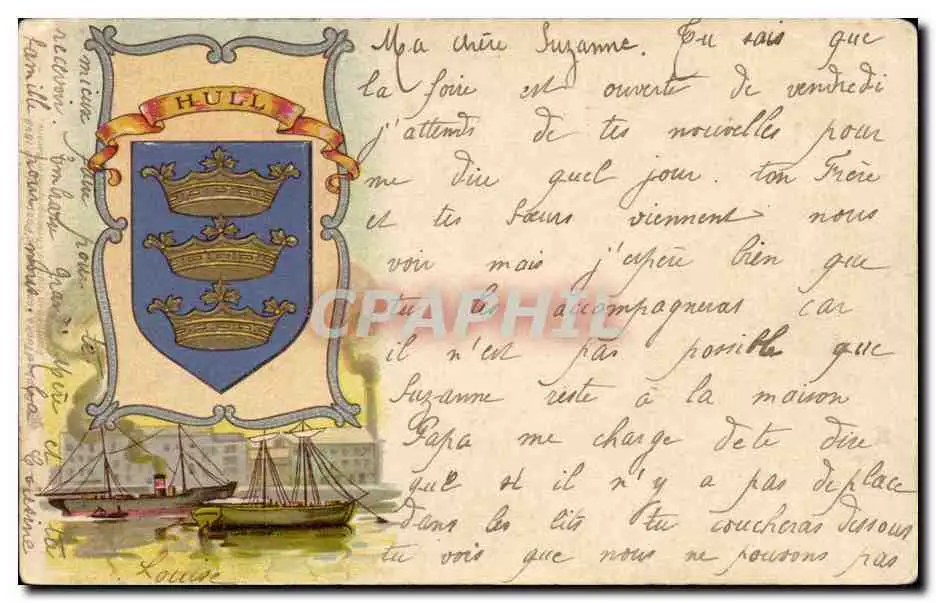 HULL
Ma chère Suzanne. Tu sais que
la foire est ouverte de vendredi
j'attends de tes nouvelles pour
me dire quel jour. ton Frère
et tes Sœurs viennent nous
voir mais j'espère bien que
tu les accompagneras car
il n'est pas possible que
Suzanne reste à la maison
Papa me charge de te dire
que si il n'y a pas de place
dans les lits tu coucheras dessous
tu vois que nous ne pouvons pas
mieux faire pour te
recevoir. Embrasse grand'père et toute la
famille pour nous. ta Cousine
Louise
CPAPHIL